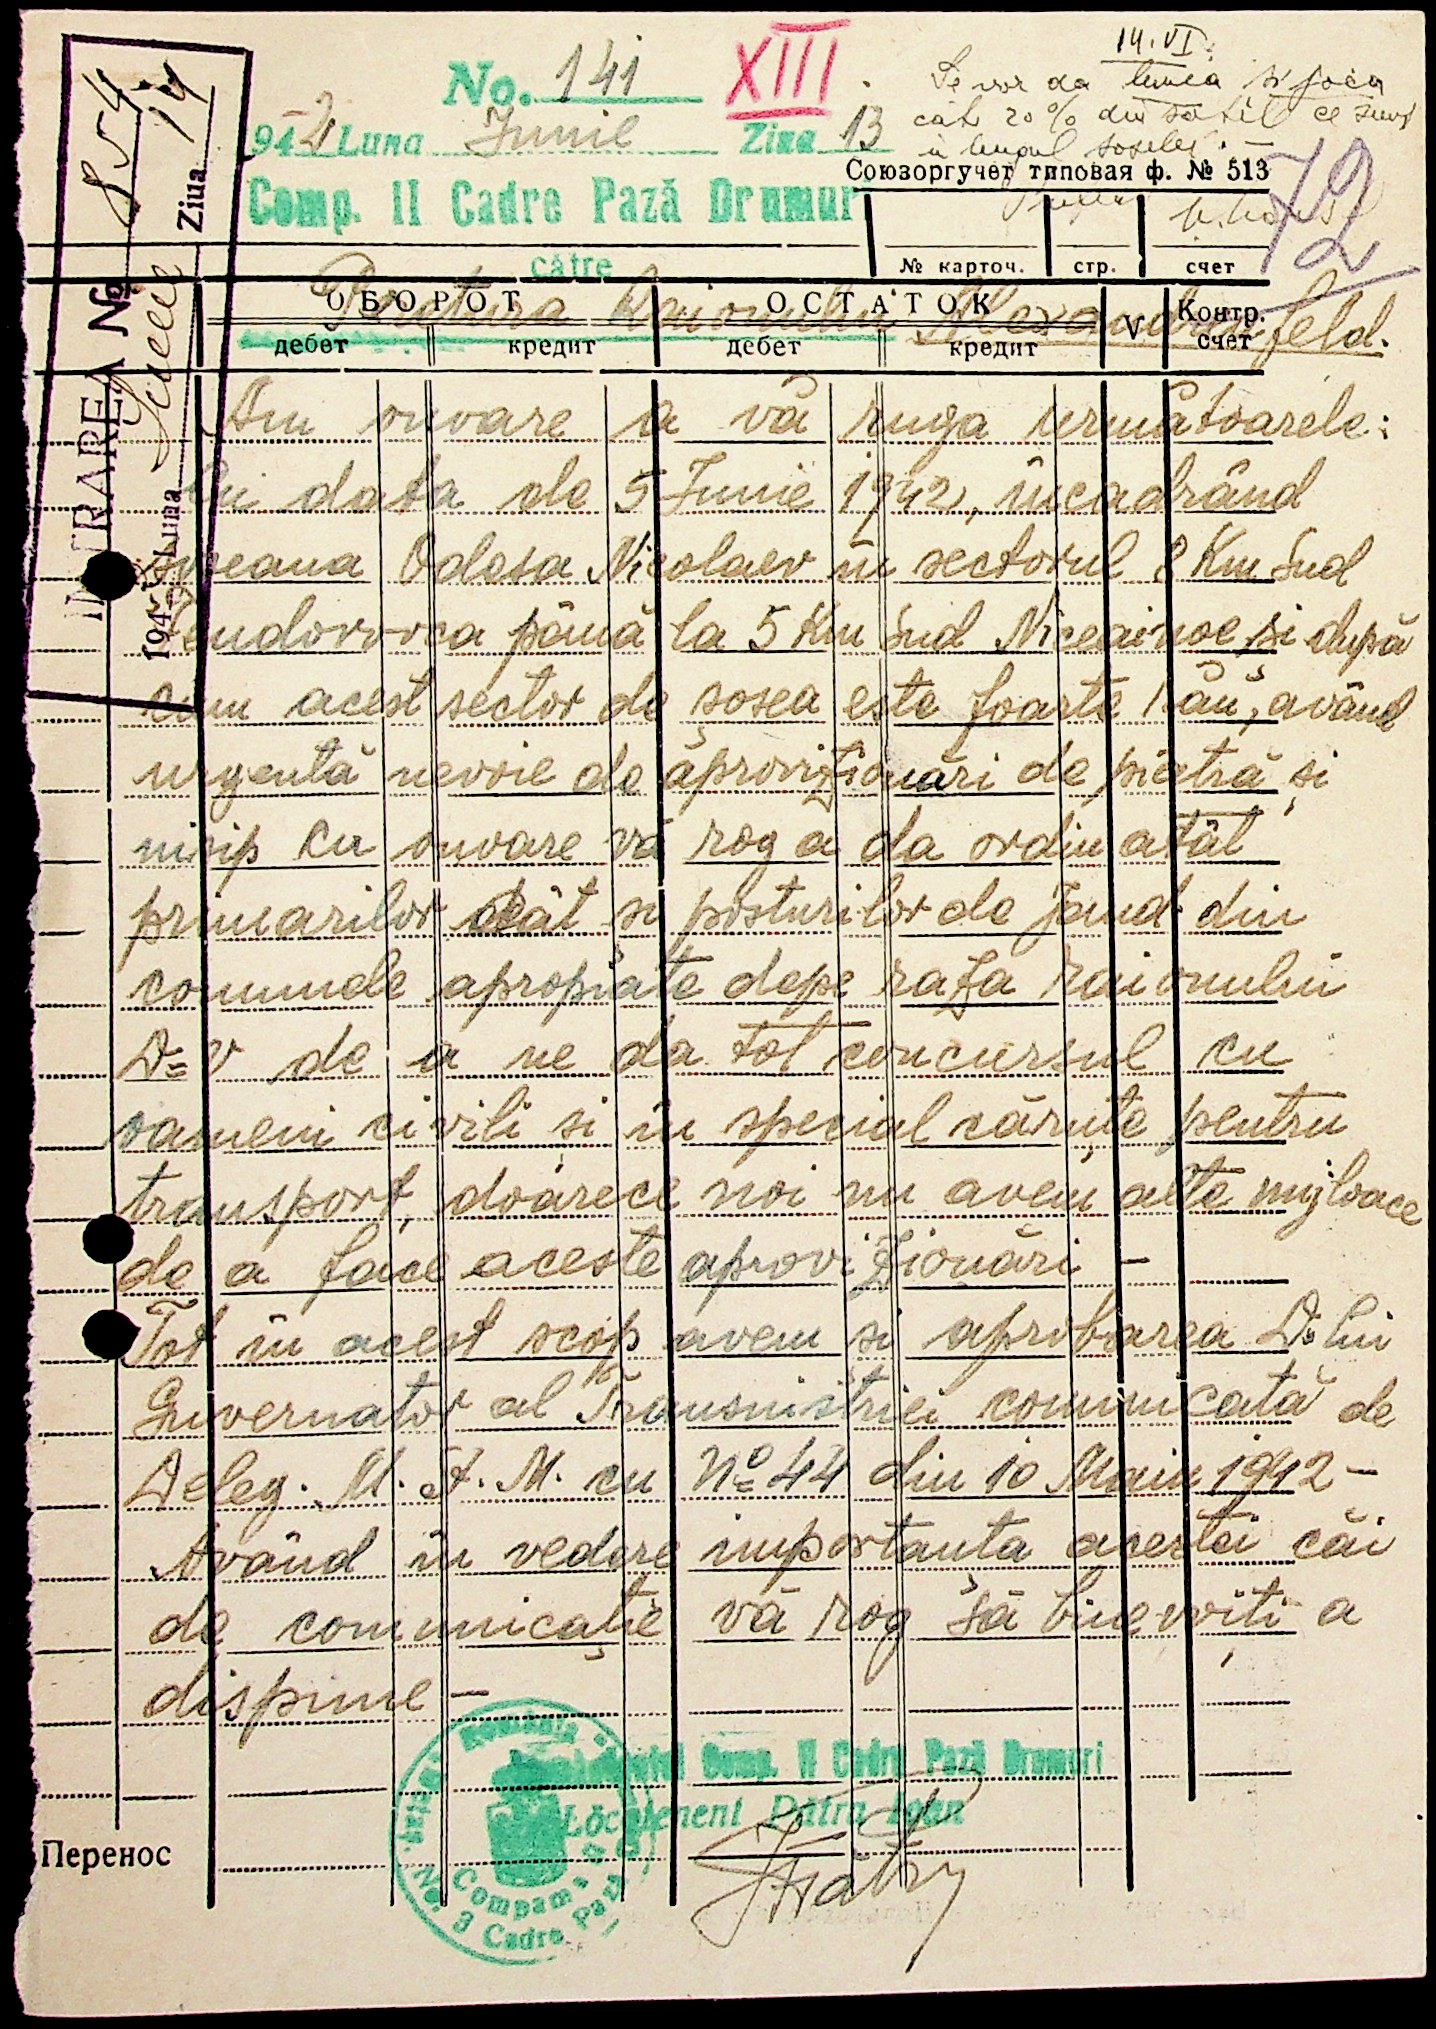 No. 141 XIII
14.VI.
Se vor da munca și
cât 20% din satele ce sunt
în lungul șoselei. —
942 Luna Junie Ziua 13
Союзоргучет типовая ф. № 513
72
Comp. II Cadre Pază Drumur
№ карточ. стр. счет
către
Pretura Raionului Alexanderfeld.
ОБОРОТ ОСТАТОК V Контр. счет
дебет кредит дебет кредит
INTRAREA No 854
194 Luna Iunie Ziua 14
Am onoare a vă ruga următoarele:
În data de 5 Junie 1942, încadrând
șoseaua Odesa Nicolaev în sectorul 8 Km Sud
până la 5 Km Sud și după
cum acest sector de șosea este foarte rău, având
urgentă nevoie de aprovizionări de pietră și
nisip cu onoare vă rog a da ordin atât
primarilor cât și posturilor de Jand. din
comunele apropiate depe raza raionului
D=v de a ne da tot concursul cu
oameni civili și în special căruțe pentru
transport, doarece noi nu avem alte mijloace
de a face aceste aprovizionări —
Tot în acest scop avem și aprobarea D-lui
Guvernator al Transnistriei comunicată de
Deleg. M. St. M. cu No 44 din 10 Maiu 1942 —
Având în vedere importanta acestei căi
de comunicație vă rog să binevoiți a
dispune —
Comp. II Cadre Pază Drumuri
Locotenent Pătru Ioan
România
Compania II
No. 3 Cadre Pază
Перенос